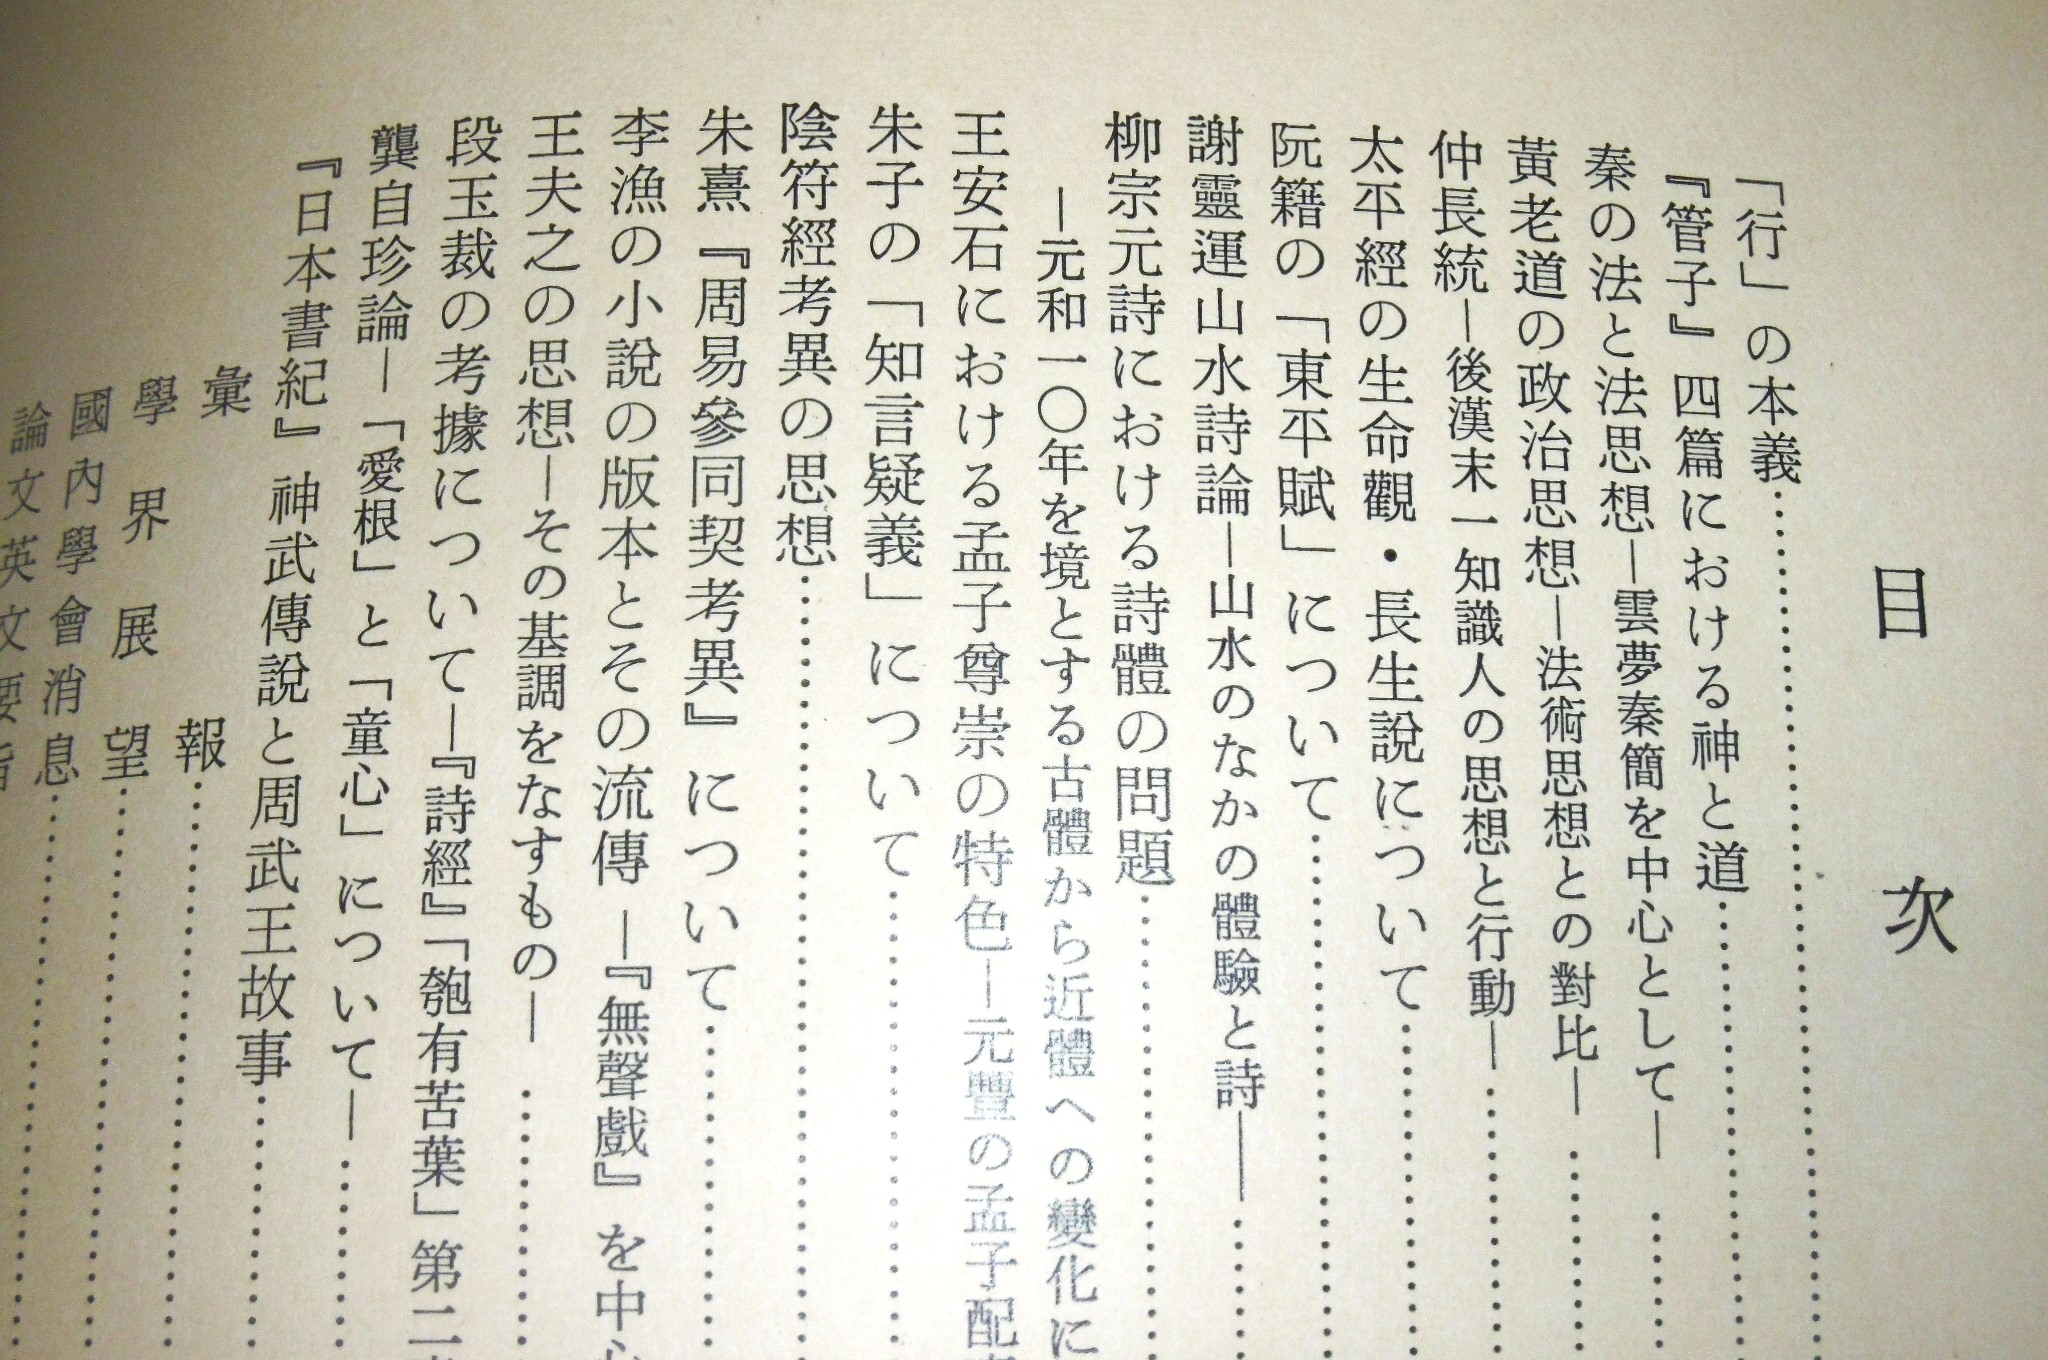 目次
「行」の本義
『管子』四篇における神と道
秦の法と法思想―雲夢秦簡を中心として―
黃老道の政治思想―法術思想との對比―
仲長統―後漢末一知識人の思想と行動―
太平經の生命觀・長生說について
阮籍の「東平賦」について
謝靈運山水詩論―山水のなかの體驗と詩―
柳宗元詩における詩體の問題
―元和一〇年を境とする古體から近體への變化に
王安石における孟子尊崇の特色―元豐の孟子配
朱子の「知言疑義」について
陰符經考異の思想
朱熹『周易參同契考異』について
李漁の小說の版本とその流傳―『無聲戲』を中
王夫之の思想―その基調をなすもの―
段玉裁の考據について―『詩經』「匏有苦葉」第二
龔自珍論―「愛根」と「童心」について―
『日本書紀』神武傳說と周武王故事
彙報
學界展望
國內學會消息
論文英文要旨